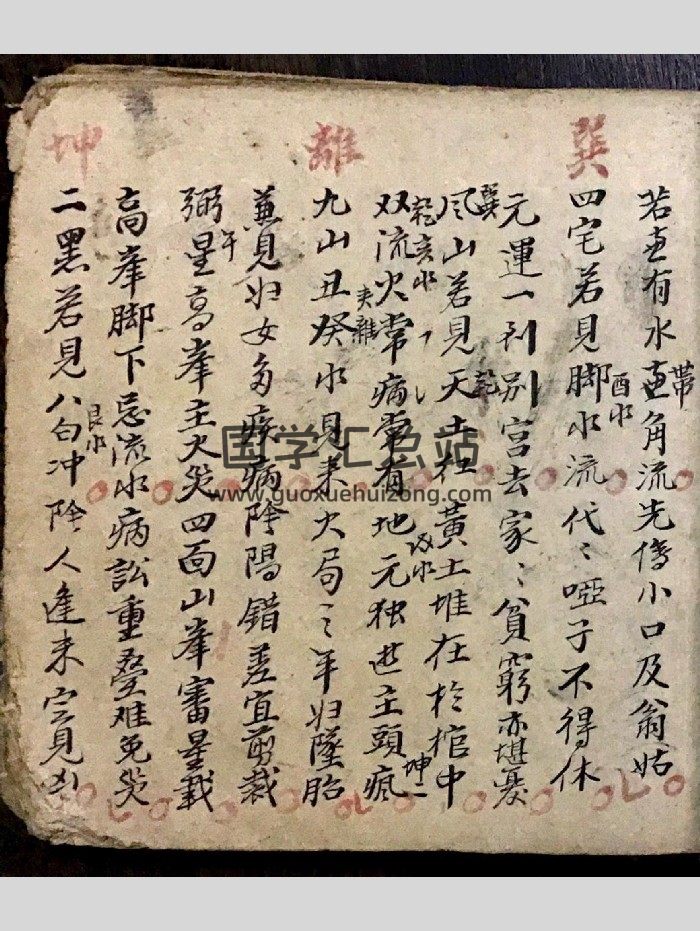 若直有水直角流先傷小口及翁姑
帶
巽
四宅若見脚水流代〻啞子不得休
酉水
元運一到別宮去家〻貧窮亦堪憂
巽
乾
風山若見天土在黃土堆在於棺中
乾亥水
戌水
坤二
双流火常病常有地元独逰主頭瘋
離
夹離
九山丑癸水見来火局〻年妇墜胎
兼見妇女多疾病陰陽錯差宜剪裁
午
弼星高峯主火災四面山峯審星載
高峯脚下忌流水病訟重叠难免災
坤
艮水
二黑若見八白冲陰人逢来定見凶
国学汇总站
www.guoxuehuizong.com